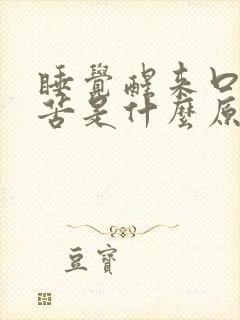 睡覺醒來口
苦是什麼原
豆寶